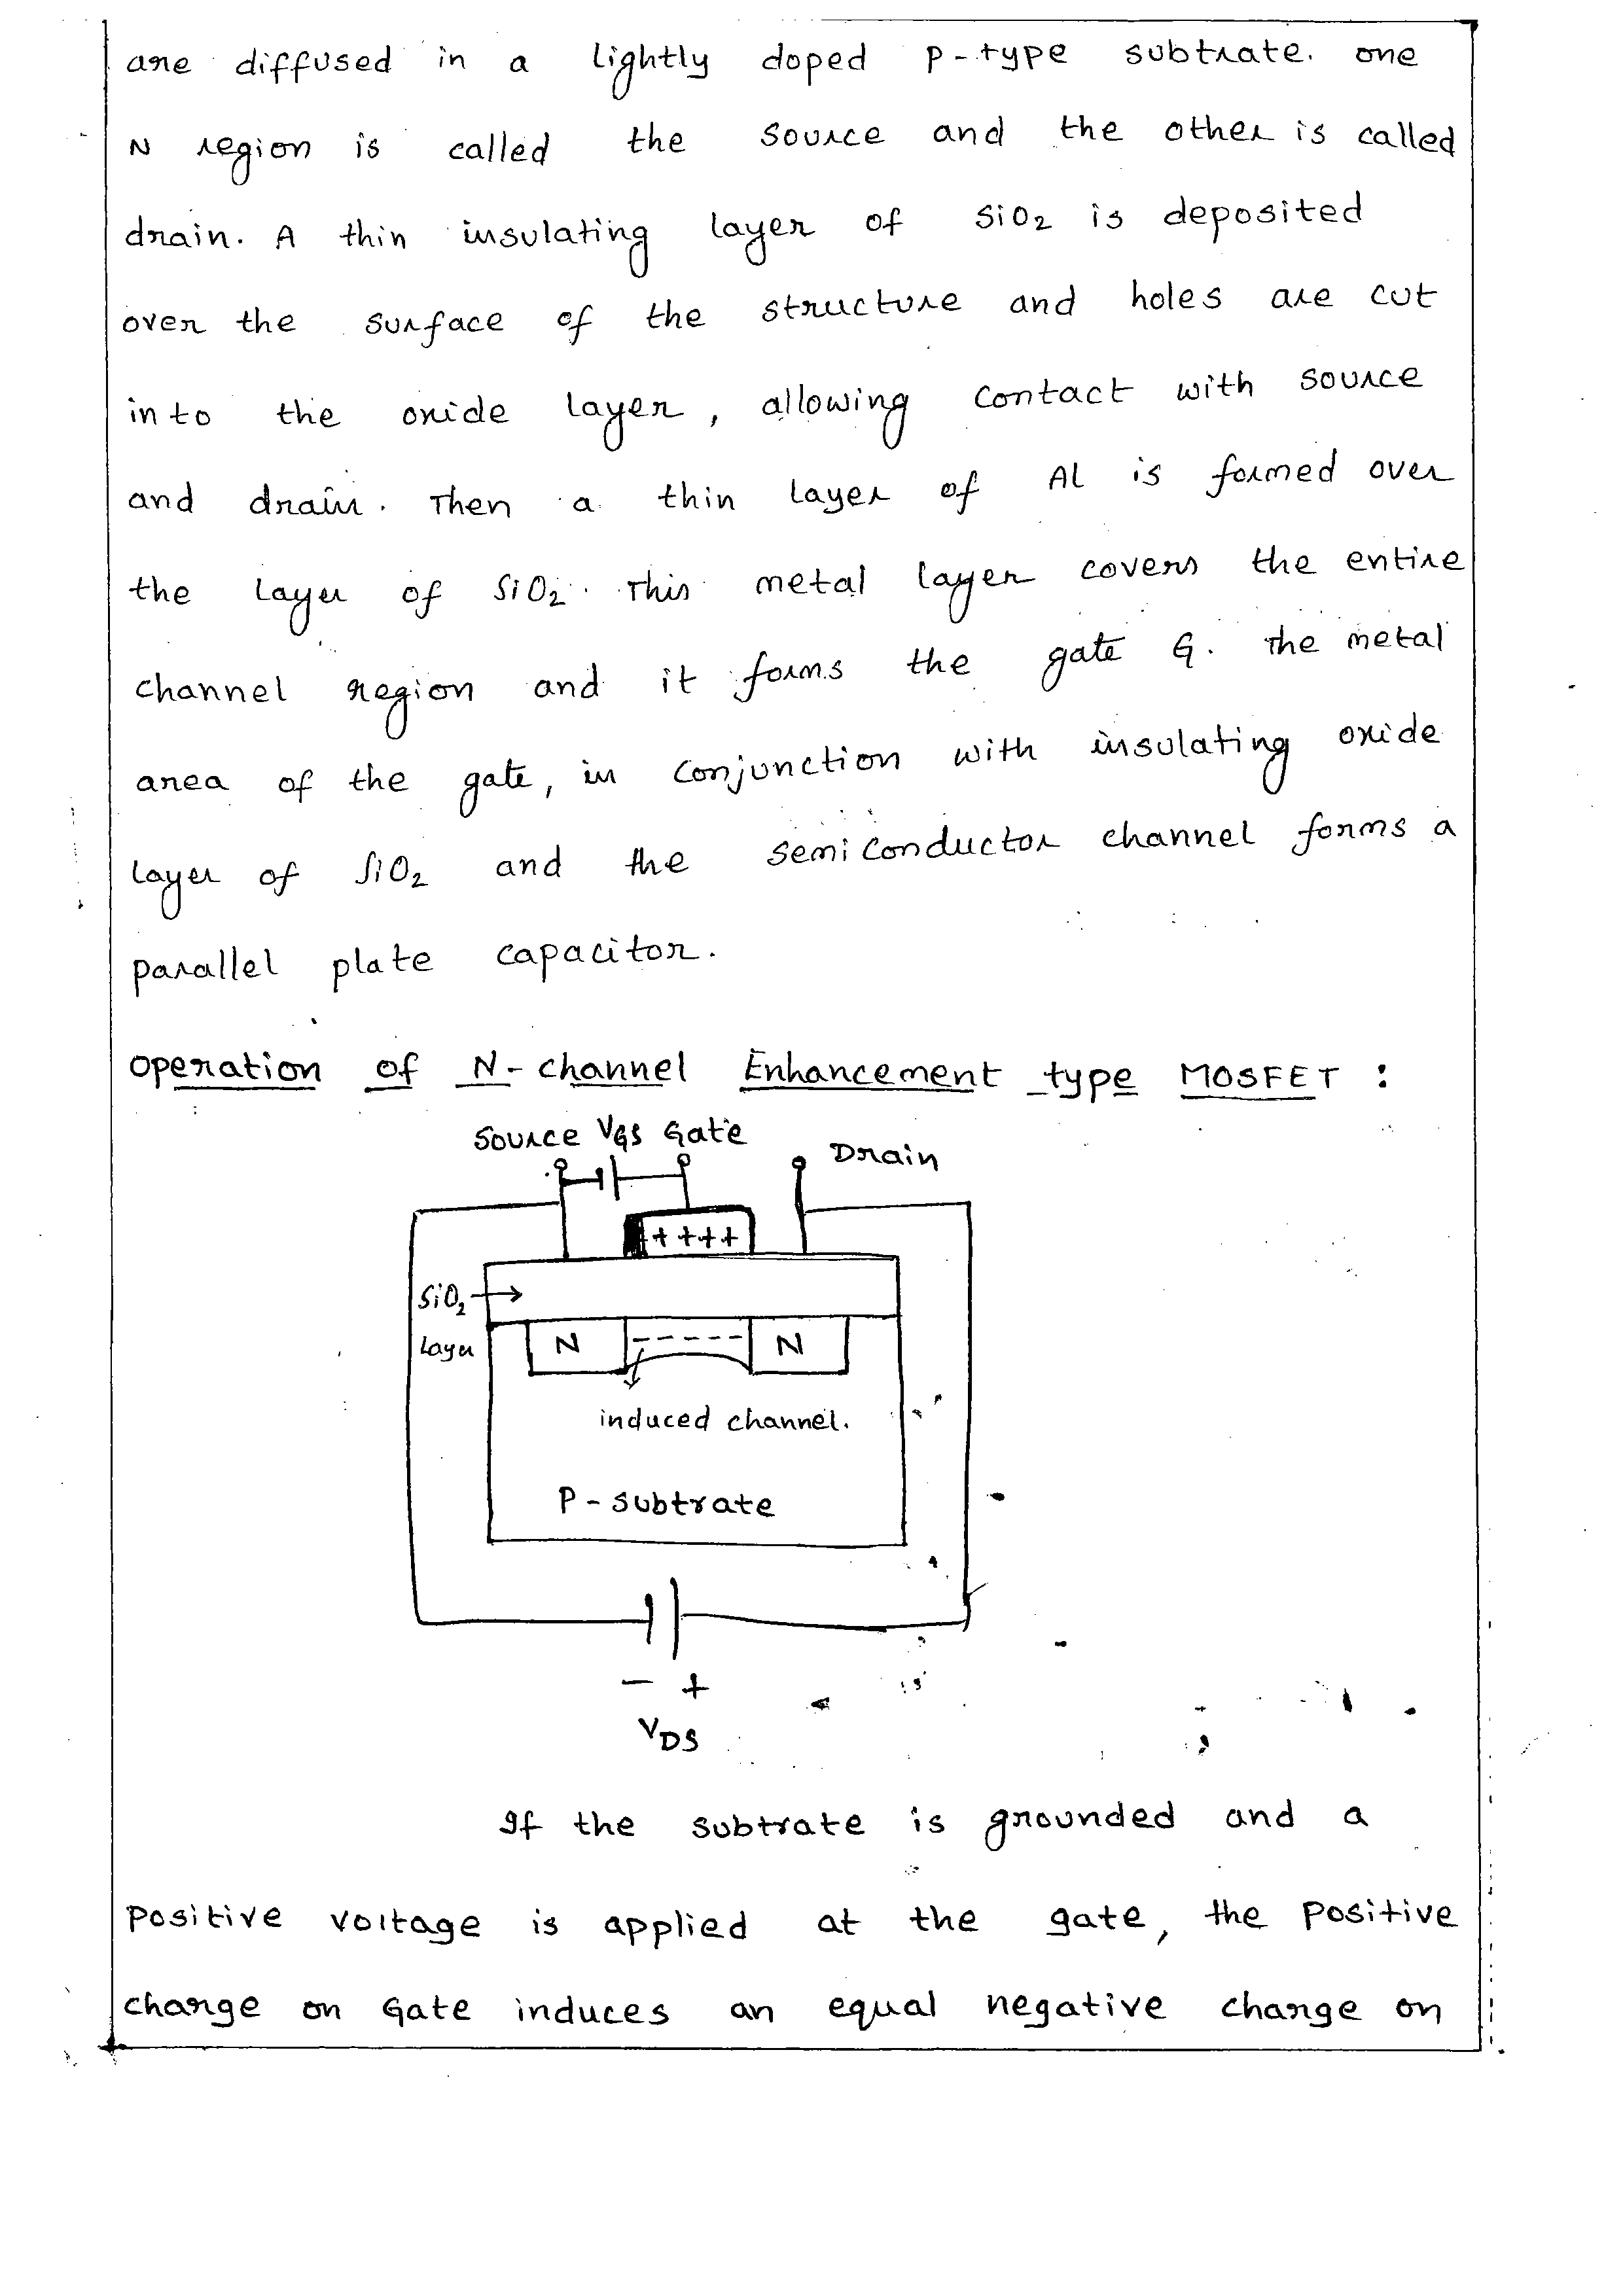 are diffused in a lightly doped P-type subtrate. one
N region is called the source and the other is called
drain. A thin insulating layer of SiO₂ is deposited
over the surface of the structure and holes are cut
into the oxide layer, allowing contact with source
and drain. Then a thin layer of Al is formed over
the layer of SiO₂. This metal layer covers the entire
channel region and it forms the gate G. The metal
area of the gate, in conjunction with insulating oxide
layer of SiO₂ and the semiconductor channel forms a
parallel plate capacitor.
operation of N-channel Enhancement type MOSFET :
Source VGS Gate
Drain
++++
SiO₂
layer
N
N
induced channel.
P-subtrate
- +
VDS
If the subtrate is grounded and a
positive voltage is applied at the gate, the positive
charge on Gate induces an equal negative charge on